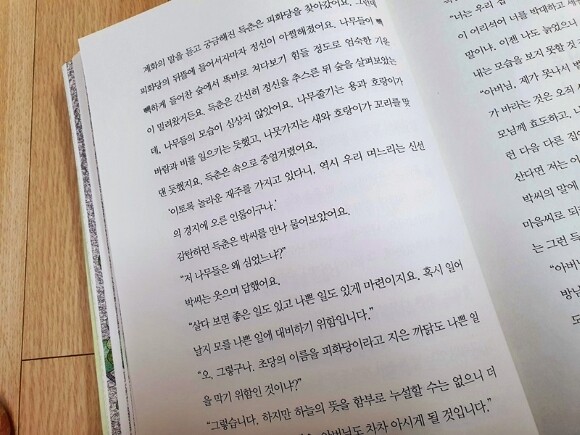 계화의 말을 듣고 궁금해진 득춘은 피화당을 찾아갔어요. 그런데
피화당의 뒤뜰에 들어서자마자 정신이 아찔해졌어요. 나무들이 빽
빽하게 들어찬 숲에서 똑바로 쳐다보기 힘들 정도로 엄숙한 기운
이 밀려왔거든요. 득춘은 간신히 정신을 추스른 뒤 숲을 살펴보았는
데, 나무들의 모습이 심상치 않았어요. 나무줄기는 용과 호랑이가
바람과 비를 일으키는 듯했고, 나뭇가지는 새와 호랑이가 꼬리를 맞
댄 듯했지요. 득춘은 속으로 중얼거렸어요.
'이토록 놀라운 재주를 가지고 있다니, 역시 우리 며느리는 신선
의 경지에 오른 인물이구나.'
감탄하던 득춘은 박씨를 만나 물어보았어요.
"저 나무들은 왜 심었느냐?"
박씨는 웃으며 답했어요.
"살다 보면 좋은 일도 있고 나쁜 일도 있게 마련이지요. 혹시 일어
날지 모를 나쁜 일에 대비하기 위함입니다."
"오, 그렇구나. 초당의 이름을 피화당이라고 지은 까닭도 나쁜 일
을 막기 위함인 것이냐?"
"그렇습니다. 하지만 하늘의 뜻을 함부로 누설할 수는 없으니 더
아버님도 차차 아시게 될 것입니다."
"너는 우리 집
이 어리석어 너를 박대하고 세
말이냐. 이젠 나도 늙었으니
내는 모습을 보지 못할 것
"아버님, 제가 못나서 벌
가 바라는 것은 오직 서
모님께 효도하고,
런 다음 다른 집
산다면 저는 아
박씨의 말에
마음씨로 되
는 그런 득
"아버니
방님